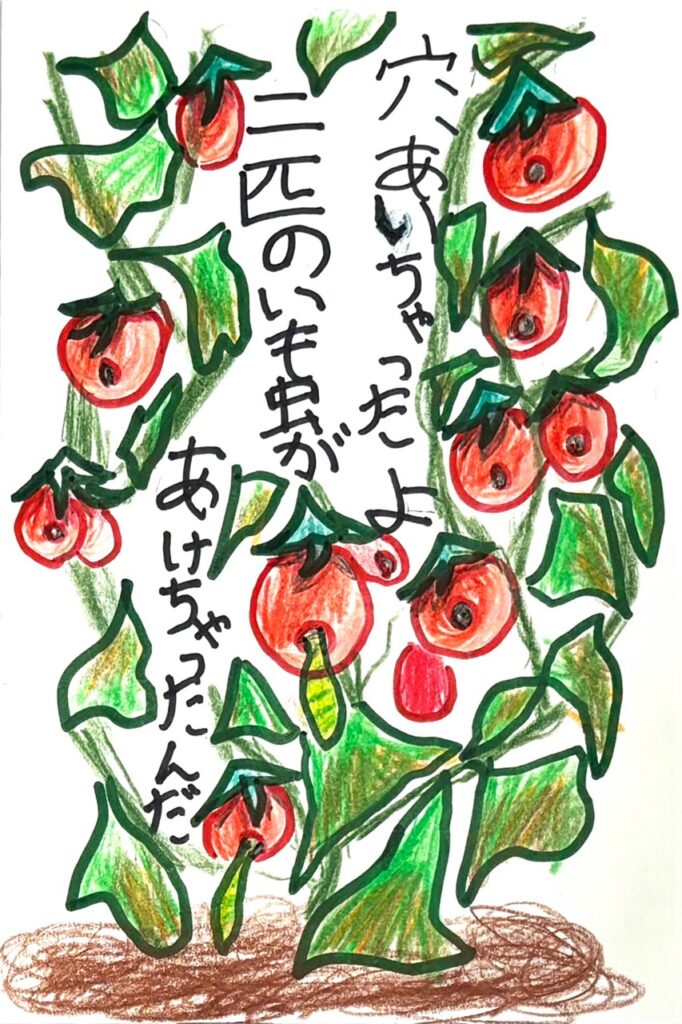 穴、あいちゃったよ
二匹のいも虫が
あけちゃったんだ